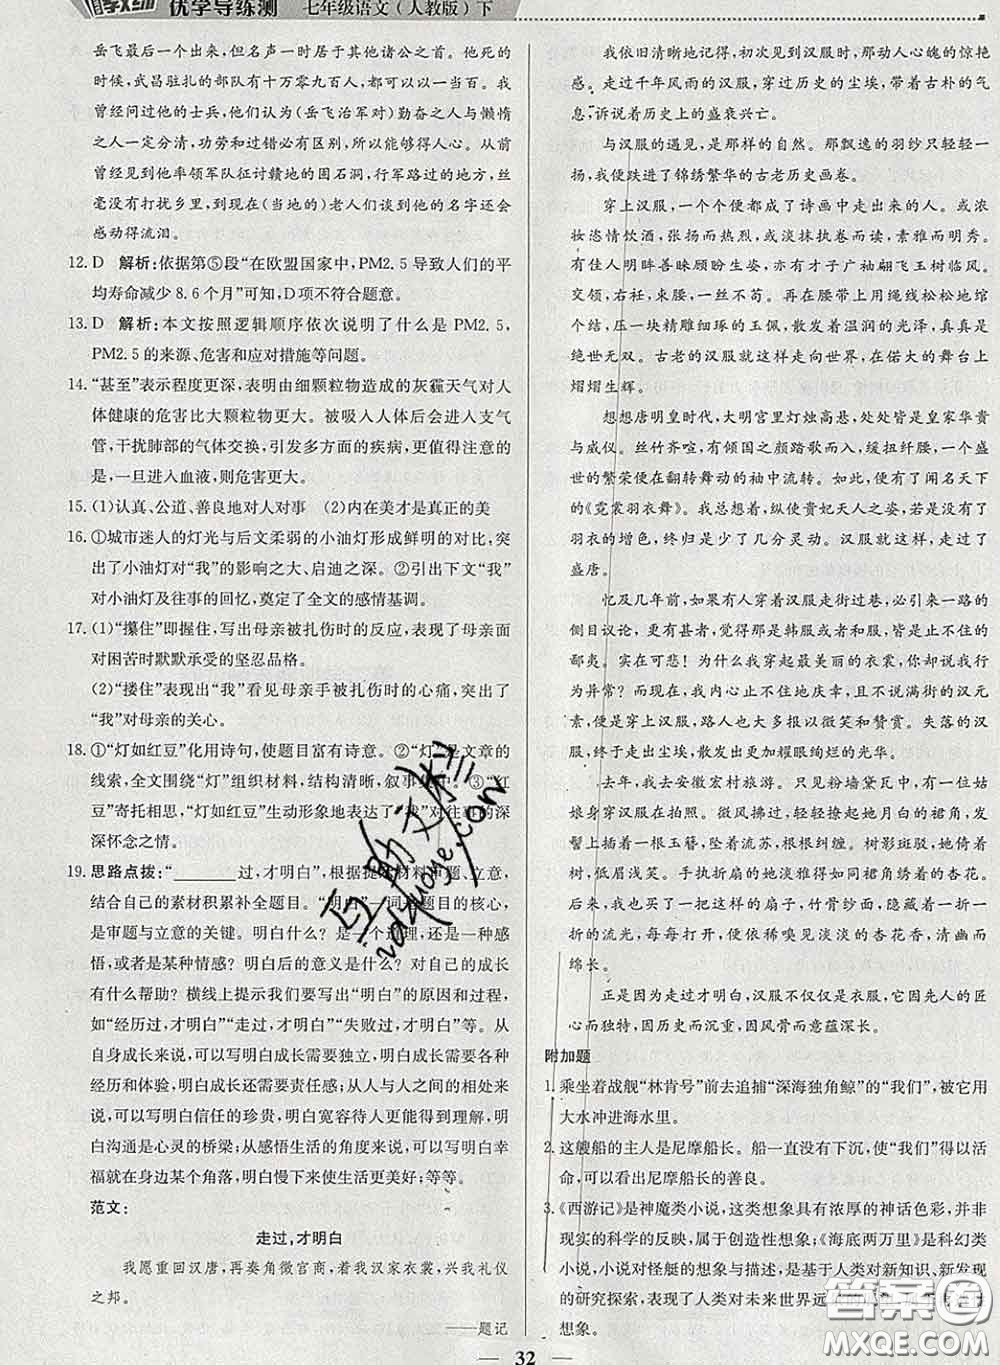 优学导练测 七年级语文(人教版)下
岳飞最后一个出来,但是响动一时高于其他诸公之上。他死的
时候,武昌驻扎的部队有十万零九百人,都一天天依赖他活命。我
曾经问过他的士兵,(岳飞治军对)勤奋的人与懒惰
之人一定分清,功劳和过错必有区别,所以能得人心。从前
曾经看到他率领军队征讨赣地的固石洞,行军路过的地方,丝
毫没有打扰乡里,到现在(当地的)老人们谈到他的名字还会
感动得流泪。
12. D 解析:依据第⑤段“在欧盟国家中,PM2.5导致人们的平
均寿命减少8.6个月”可知,D项不符合题意。
13. D 解析:本文按照逻辑顺序依次说明了什么是PM2.5,
PM2.5的来源、危害和应对措施等问题。
14. “甚至”表示程度更深,表明由细颗粒物造成的灰霾天气对人
体健康的危害比大颗粒物更大。被吸入人体后会进入支气
管,干扰肺部的气体交换,引发多方面的疾病,更值得注意的
是,一旦进入血液,则危害更大。
15. (1)认真、公道、善良地对人对事 (2)内在美才是真正的美
16. ①城市迷人的灯光与后文柔弱的小油灯形成鲜明的对比,突
出了小油灯对“我”的影响之大、启迪之深。②引出下文“我”
对小油灯及往事的回忆,奠定了全文的感情基调。
17. (1)“攥住”即握住,写出母亲被扎伤时的反应,表现了母亲面
对困苦时默默承受的坚忍品格。
(2)“搂住”表现出“我”看见母亲手被扎伤时的心痛,突出了
“我”对母亲的关心。
18. ①“灯如红豆”化用诗句,使题目富有诗意。②“灯”是文章的
线索,全文围绕“灯”组织材料,结构清晰,叙事集中。③“红
豆”寄托相思,“灯如红豆”生动形象地表达了“我”对往事的深
深怀念之情。
19. 思路点拨:“________过,才明白”,根据提示材料审题、立意,
结合自己的素材积累补全题目。“明白”一词是题目的核心,
是审题与立意的关键。明白什么?是一个道理,还是一种感
悟,或者是某种情感?明白后的意义是什么?对自己的成长
有什么帮助?横线上提示我们要写出“明白”的原因和过程,
如“经历过,才明白”“走过,才明白”“失败过,才明白”等。从
自身成长来说,可以写明白成长需要独立,明白成长需要积累
经历和体验,明白成长还需要责任感;从人与人的相处来说,
可以写明白信任的珍贵,明白宽容待人更有机会得到理解,明
白沟通是心灵的桥梁;从感悟生活的角度来说,可以写明白幸
福就在身边某个角落,明白慢下来使得生活更美好,等等。
范文:
走过,才明白
我愿重回汉唐,再奏角徵宫商,着我汉家衣裳,兴我礼仪
之邦。
——题记
我依旧清晰地记得,初次见到汉服时,那动人心魄的惊艳
感。走过千年风雨的汉服,穿过历史的尘埃,带着古朴的气
息,诉说着历史上的盛衰兴亡。
与汉服的遇见,是那样的自然。那飘逸的羽纱只轻轻一
扬,我便跌进了锦绣繁华的古老历史画卷。
穿上汉服,一个个便都成了诗画中走出来的人。或浓
妆恣情饮酒,张扬而热烈;或淡抹执卷而读,素雅而明秀。
有佳人明眸善睐顾盼生姿,亦有才子广袖翩飞玉树临风。
交领,右衽,束腰,一丝不苟。再在腰带上用绳线松松地绾
个结,压一块精雕细琢的玉佩,散发着温润的光泽,真真是
绝世无双。古老的汉服就这样走向世界,在偌大的舞台上
熠熠生辉。
想想唐明皇时代,大明宫里灯烛高悬,处处皆是皇家华贵
与威仪。丝竹齐喧,有倾国之颜踏歌而入,缓扭纤腰,一个盛
世的繁荣便在翻转舞动的袖中流转。然后便有了闻名天下
的《霓裳羽衣舞》。我总想着,纵使贵妃天人之姿,若是没有了
羽衣的增色,想来总是少了几分灵动。汉服就这样,走过了
盛唐。
忆及几年前,如果有人穿着汉服走街过巷,必引来一路的
侧目议论,更有甚者,觉得那是韩服或者和服,皆是掩不住的
鄙夷。实在可悲!为什么我穿起最美丽的衣裳,却成了他人眼中的行
为异常?而现在,我内心止不住地庆幸,且不说满街的汉元
素,便是穿上汉服,路人也大多报以微笑和赞赏。失落的汉
服,终于走出尘埃,散发出更耀眼绚烂的光华。
去年,我去安徽宏村旅游。只见粉墙黛瓦中,有一位姑
娘身穿汉服在拍照。微风拂过,轻轻撩起她月白的裙角,发
髻上插一支玉簪,坠着流苏,根根纠缠。树影斑驳,她倚着
栏,低眉浅笑。手执折扇的样子宛如同裙角绣着的杏花。
我也买了一把这样的扇子,竹骨纱面,绣得一折一
折的流光,每每打开,便可依稀嗅见淡淡的杏花香,清幽而
绵长。
正是因为走过才明白,汉服不仅仅是衣服,它因先人的匠
心而独特,因历史而沉重,因风骨而意蕴深长。
附加题
1. 乘坐着战舰“林肯号”前去追捕“深海独角鲸”的“我们”,被它用
大水冲进海水里。
2. 这艘船的主人是尼摩船长。船一直没有下沉,使“我们”得以活
命,可以看出尼摩船长的善良。
3. 《西游记》是神魔类小说,这类想象具有浓厚的神话色彩,并非现
实的科学的反映,属于创造性想象;《海底两万里》是科幻类
小说,小说对怪艇的想象与描写,是基于人类对新知识、新发现
的研究探索,表现了人类对未来世界远
想象。
互助文栏
idzuoye.com
答案圈
MXQE.COM
32